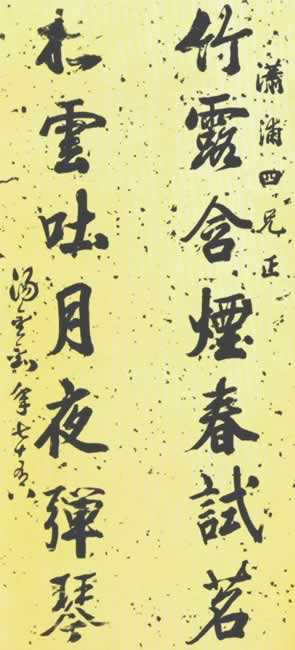 瀟浦四兄正
竹露含煙春試茗
松雲吐月夜彈琴
湯金釗年七十有八